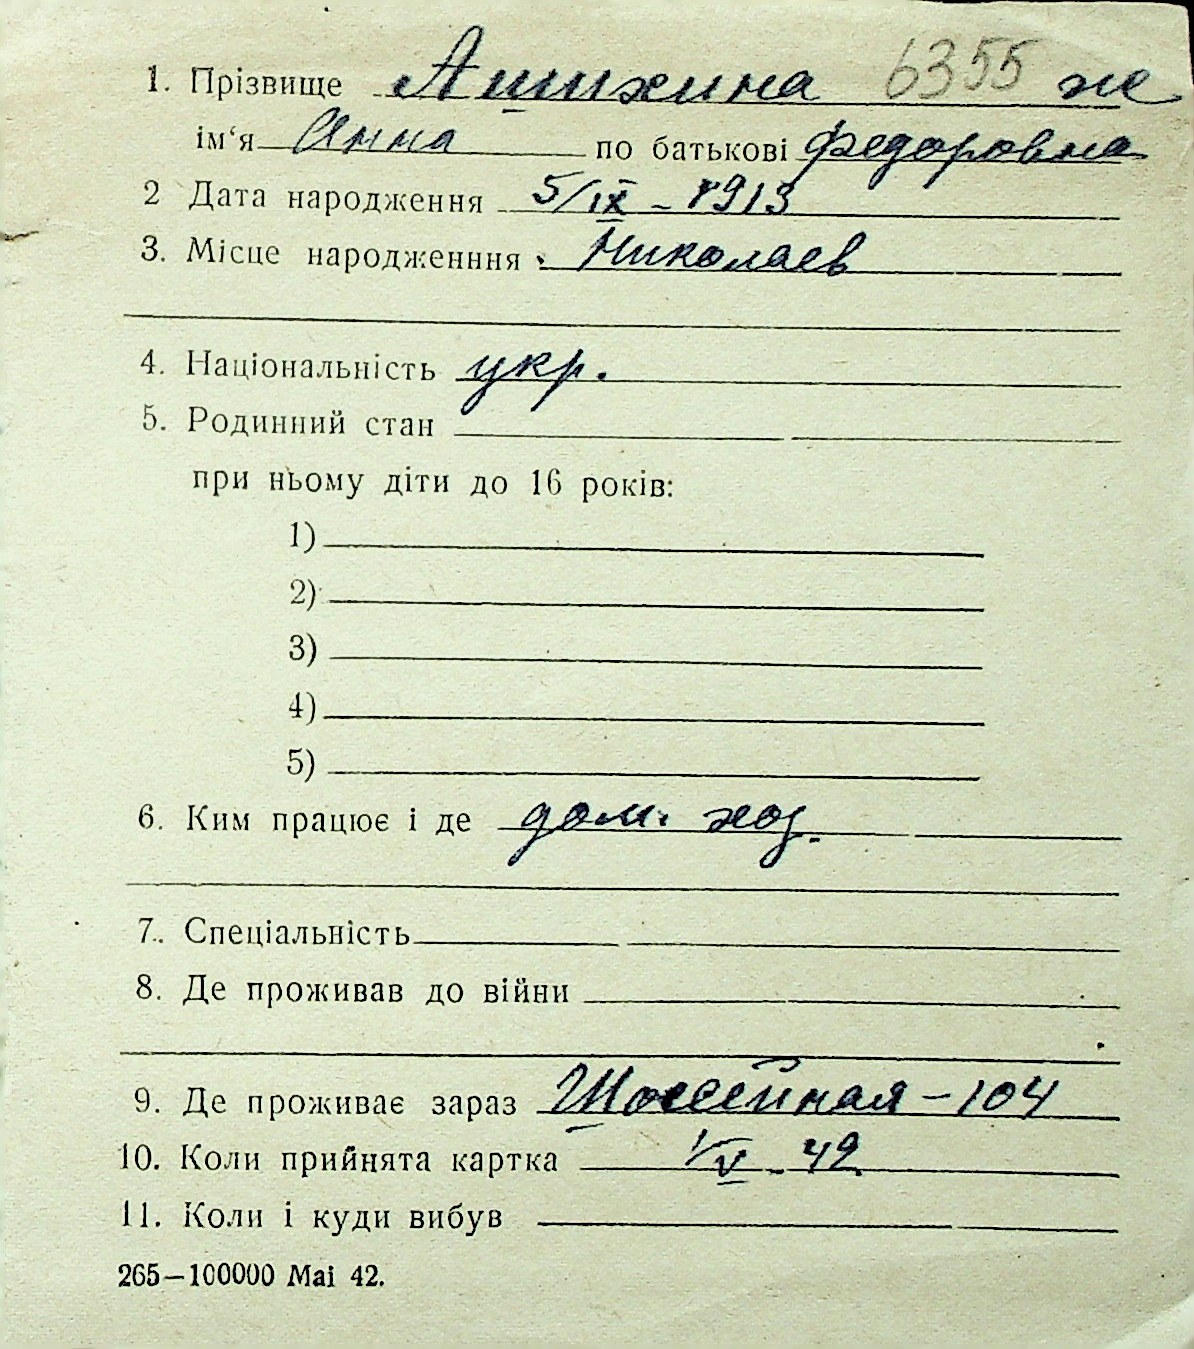 1. Прізвище Ашихина 6355 ж
ім‘я Анна по батькові Федоровна
2 Дата народження 5/IX - 1913
3. Місце народженння Николаев
4. Національність укр.
5. Родинний стан
при ньому діти до 16 років:
1)
2)
3)
4)
5)
6. Ким працює і де дом. хоз.
7. Спеціальність
8. Де проживав до війни
9. Де проживає зараз Шоссейная - 104
10. Коли прийнята картка 1/V - 42
11. Коли і куди вибув
265—100000 Mai 42.